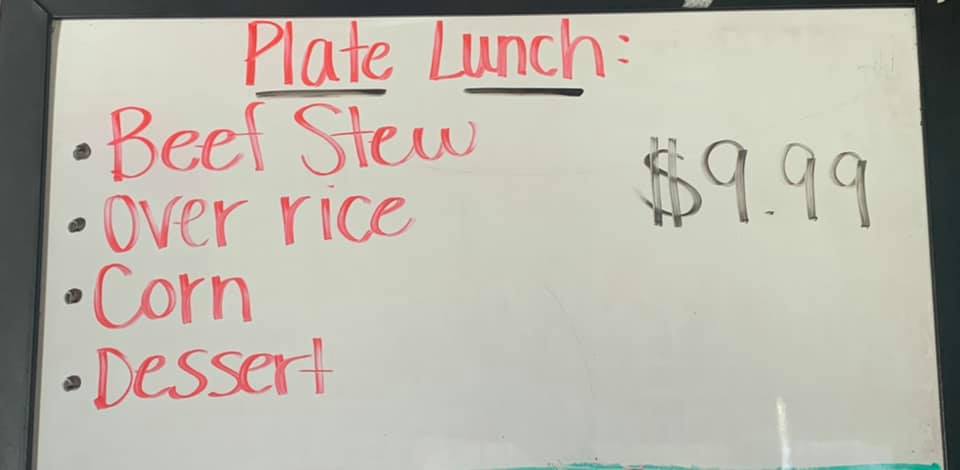 Plate Lunch:
• Beef Stew
• Over rice
$9.99
• Corn
• Dessert